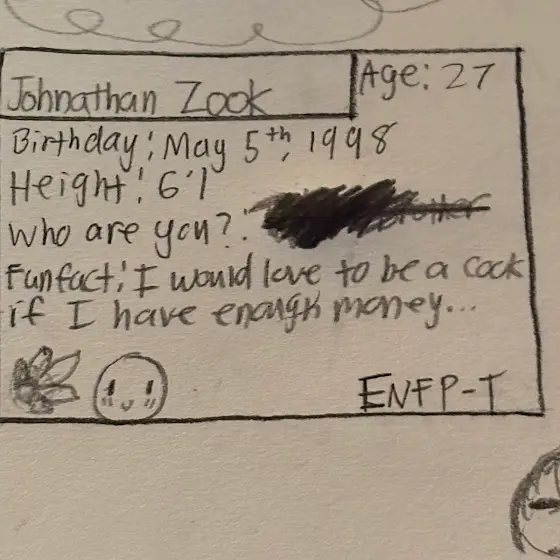 Johnathan Zook
Age: 27
Birthday: May 5th, 1998
Height: 6'1
Who are you?:
Funfact: I would love to be a cock
if I have enough money...
ENFP-T